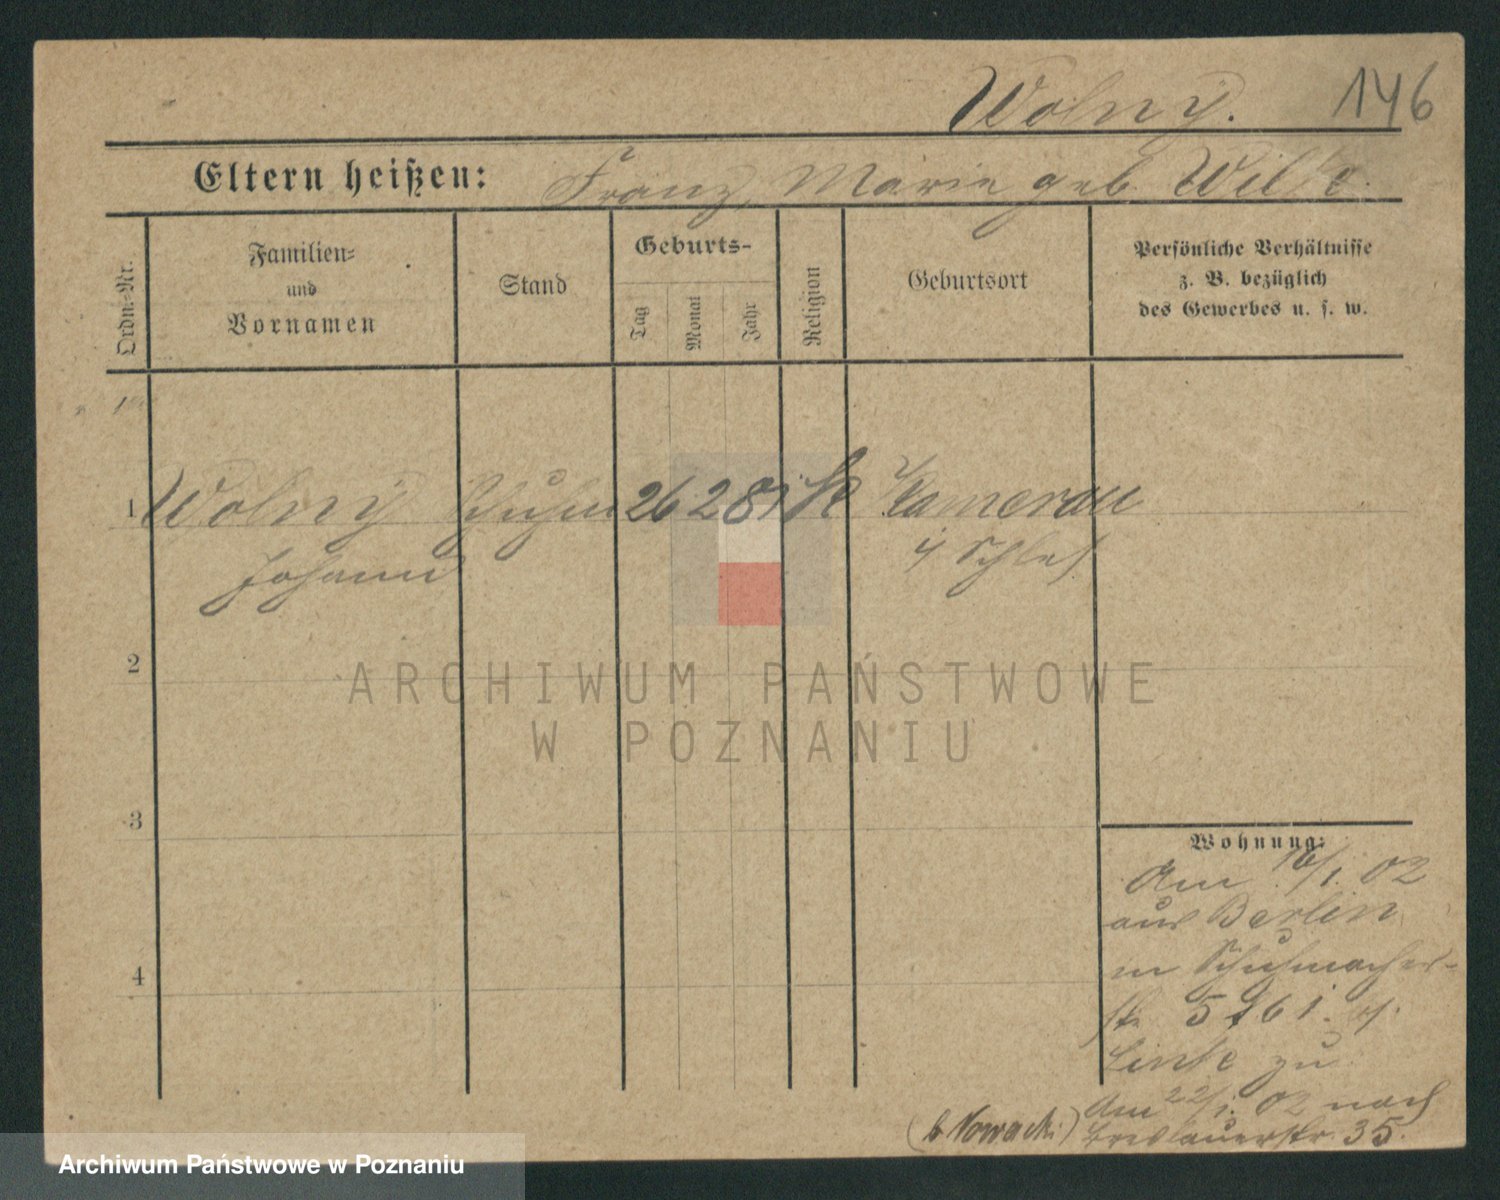 Wolny. 146
Eltern heißen: Franz, Marie geb. Wilke.
Ordn.-Nr.
Familien-
und
Vornamen
Stand
Geburts-
Tag
Monat
Jahr
Religion
Geburtsort
Persönliche Verhältnisse
z. B. bezüglich
des Gewerbes u. s. w.
1 Wolny Schuhm 26 2 81 K Kamerau
Johann i/ Schles
2
ARCHIWUM PAŃSTWOWE
W POZNANIU
3
4
Wohnung:
Am 16/1. 02
aus Berlin
in Schuhmacher-
str. 5 61.
Linke zu
Am 22/1. 02 nach
(b Nowacki) Breslauerstr. 35.
Archiwum Państwowe w Poznaniu